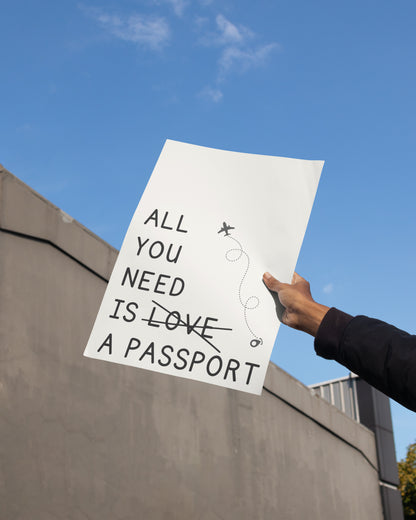 ALL
YOU
NEED
IS LOVE
A PASSPORT